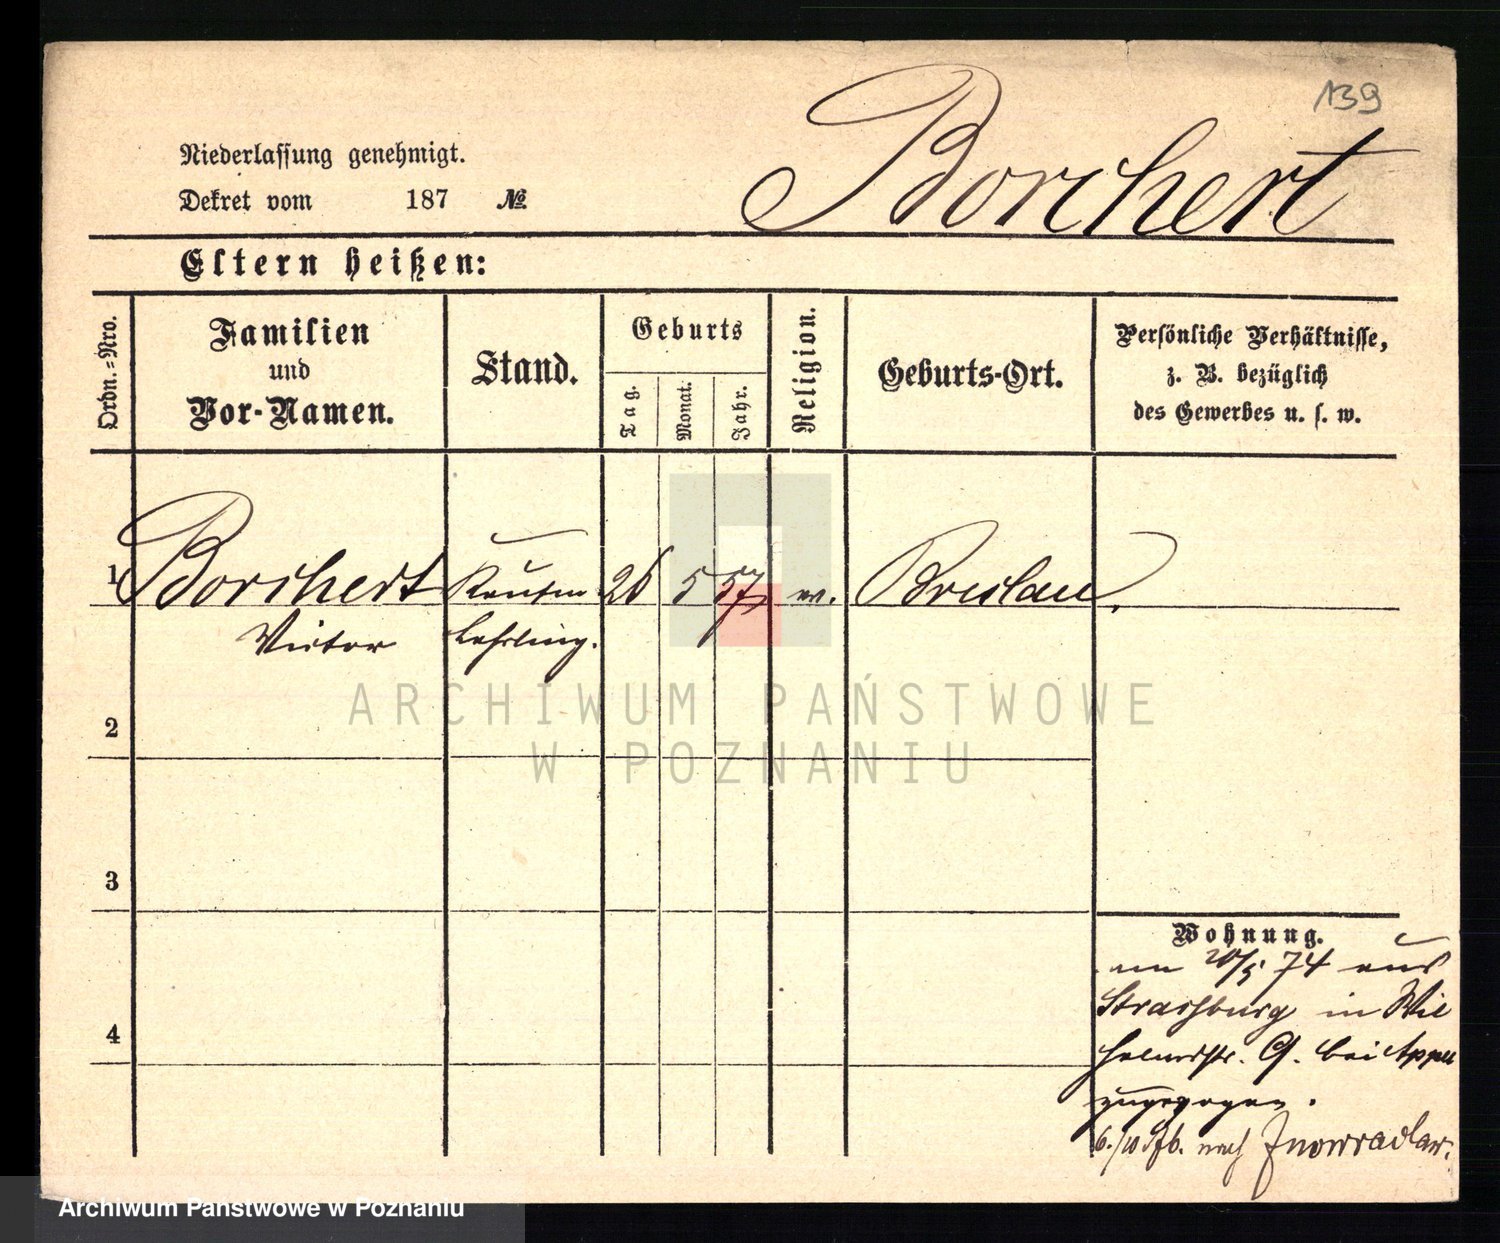 139
Niederlassung genehmigt.
Dekret vom 187 №
Borchert
Eltern heißen:
Ordn.=Nro.
Familien
und
Vor-Namen.
Stand.
Geburts
Tag.
Monat.
Jahr.
Religion.
Geburts-Ort.
Persönliche Verhältnisse,
z. B. bezüglich
des Gewerbes u. s. w.
1 Borchert Kaufm 26 5 57 ev. Breslau.
Victor Lehrling.
ARCHIWUM PAŃSTWOWE
W POZNANIU
2
3
4
Wohnung.
am 20/5 74 aus
Strasburg in Wil
helmstr. 9. bei Appel
zugezogen.
6./10 nach Inowradlaw.
Archiwum Państwowe w Poznaniu